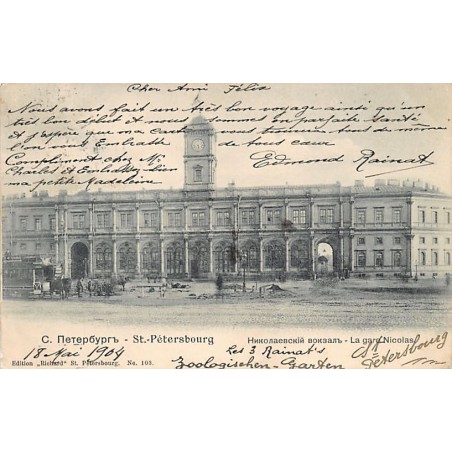 Cher Ami Félix
Nous avons fait un très bon voyage ainsi qu'un
très bon début et nous sommes en parfaite santé
et j'espère que ma carte vous trouvera tous de même
nous vous Embrasse de tous coeur
Compliment chez Mr
Charles et Embrasse bien Edmond Rainat
ma petite Madeleine
С. Петербургъ - St.-Pétersbourg
Николаевскій вокзалъ - La gare Nicolas
18 Mai 1904
Les 3 Rainat's
St Pétersbourg
Edition „Richard" St. Pétersbourg. No. 103.
Zoologischen-Garten